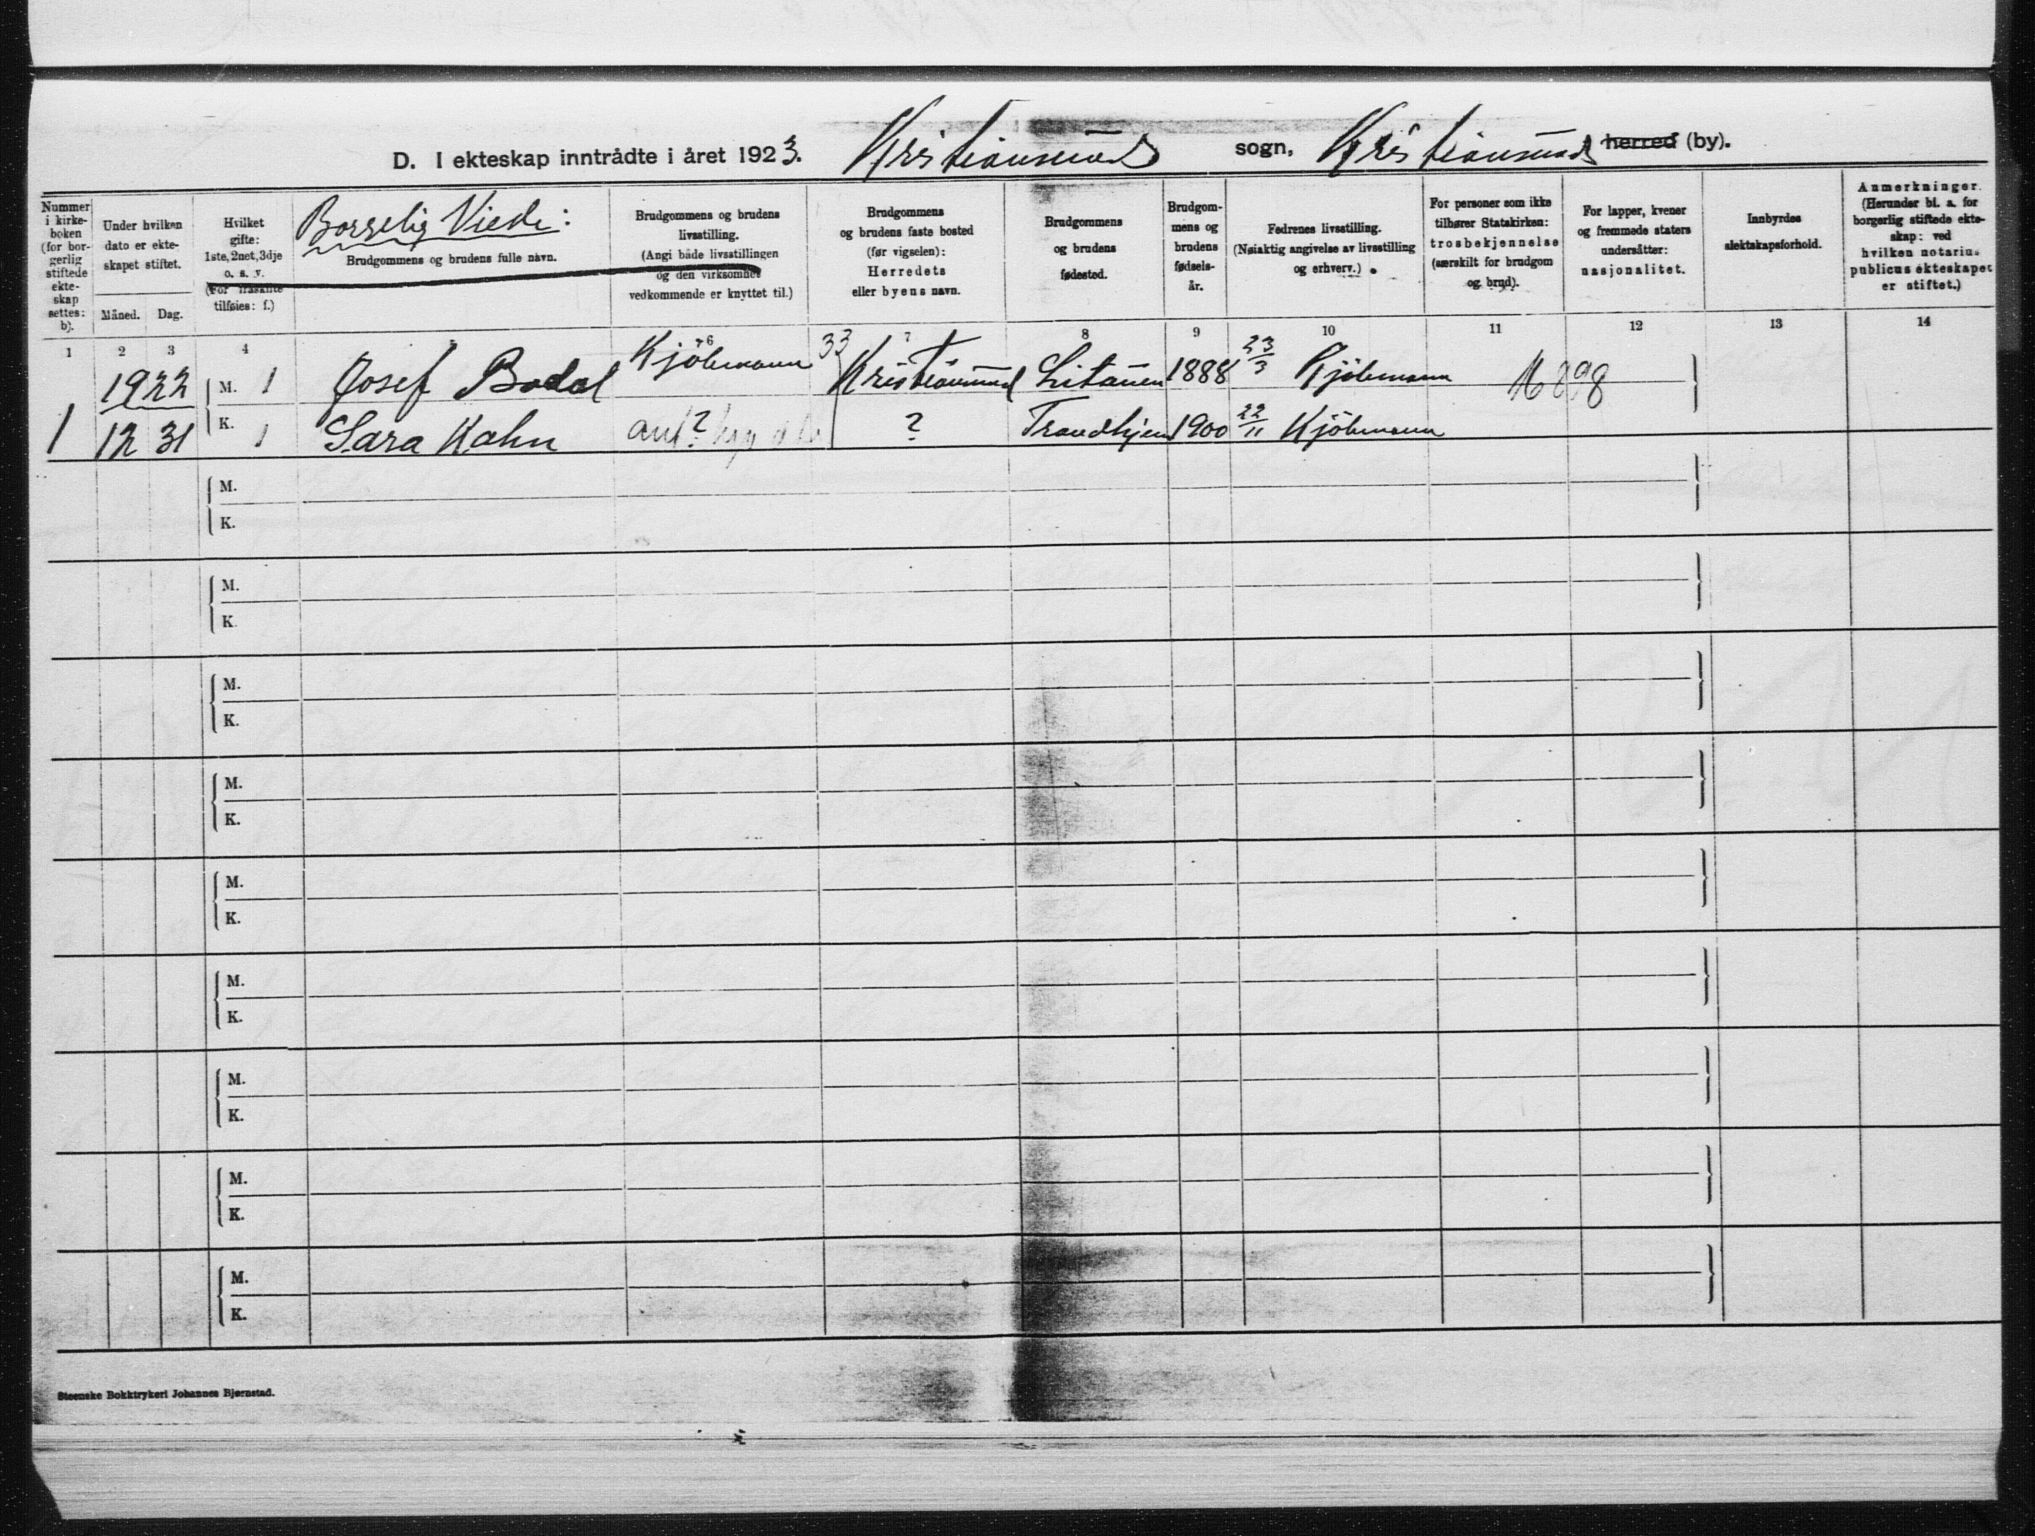 D. I ekteskap inntrådte i året 1923. Kristiansund sogn, Kristiansund herred (by).
Nummer i kirke-boken (for bor-gerlig stiftede ekte-skap settes: b).
Under hvilken dato er ekte-skapet stiftet.
Måned. Dag.
Hvilket gifte: 1ste, 2net, 3dje o. s. v. (For fraskilte tilføies: f.)
Borgelig Viede:
Brudgommens og brudens fulle navn.
Brudgommens og brudens livsstilling. (Angi både livsstillingen og den virksomhet vedkommende er knyttet til.)
Brudgommens og brudens faste bosted (før vigselen): Herredets eller byens navn.
Brudgommens og brudens fødested.
Brudgom-mens og brudens fødsels-år.
Fedrenes livsstilling. (Nøiaktig angivelse av livsstilling og erhverv.)
For personer som ikke tilhører Statskirken: trosbekjennelse (særskilt for brudgom og brud).
For lapper, kvener og fremmede staters undersåtter: nasjonalitet.
Innbyrdes slektskapsforhold.
Anmerkninger. (Herunder bl. a. for borgerlig stiftede ekte-skap: ved hvilken notarius publicus ekteskapet er stiftet.)
1 2 3 4 6 7 8 9 10 11 12 13 14
1922 M. 1 Josef Bodal Kjöbmann 33 Kristiansund Litauen 1888 23/3 Kjöbmann 898
1 12 31 K. 1 Sara Kahn ? ? Trondhjem 1900 22/11 Kjöbmann
M.
K.
M.
K.
M.
K.
M.
K.
M.
K.
M.
K.
M.
K.
M.
K.
M.
K.
Steenske Boktrykkeri Johannes Bjørnstad.